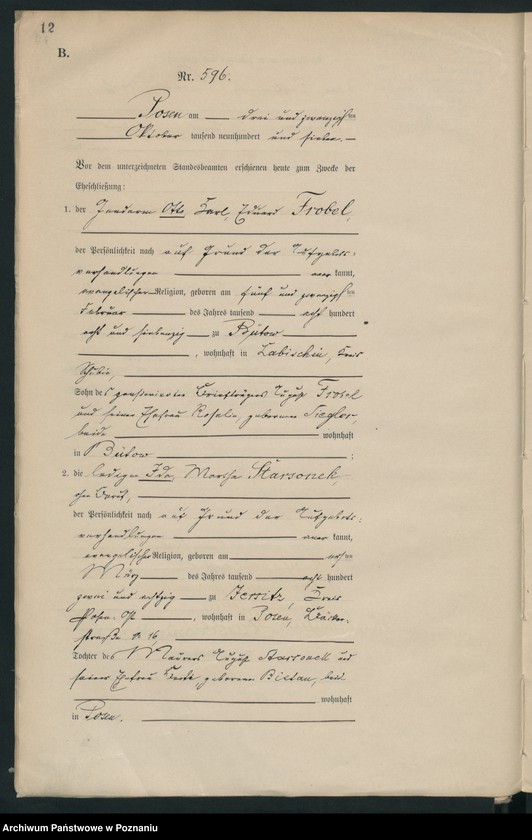 12
B.
Nr. 596.
Posen am drei und zwanzigsten
Oktober tausend neunhundert und sieben.
Vor dem unterzeichneten Standesbeamten erschienen heute zum Zwecke der
Eheschließung:
1. der Gendarm Otto, Karl, Eduard Frobel,
der Persönlichkeit nach auf Grund der Aufgebots-
verhandlungen anerkannt,
evangelischer Religion, geboren am fünf und zwanzigsten
Februar des Jahres tausend acht hundert
acht und siebenzig zu Bütow
, wohnhaft in Labischin, Kreis
Schubin,
Sohn des pensionierten Briefträgers August Frobel
und seiner Ehefrau Rosalie, geborenen Ziegler,
beide wohnhaft
in Bütow ;
2. die ledige Ida, Martha Starsonek,
ohne Beruf,
der Persönlichkeit nach auf Grund der Aufgebots-
verhandlungen anerkannt,
evangelischer Religion, geboren am
März des Jahres tausend acht hundert
zwei und achtzig zu Jersitz, Kreis
Posen-Ost , wohnhaft in Posen, Bäcker-
straße 16,
Tochter des Maurers August Starsonek und
seiner Ehefrau geborenen beide
wohnhaft
in Posen.
Archiwum Państwowe w Poznaniu